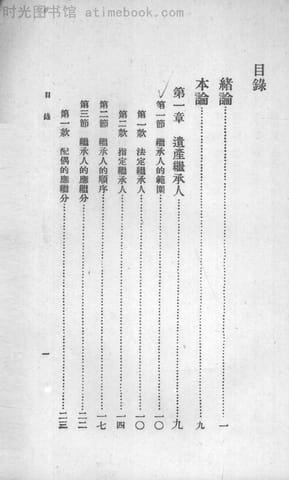 时光图书馆 - atimebook.com
目錄
緒論…………一
本論…………九
第一章 遺產繼承人…………九
第一節 繼承人的範圍…………一〇
第一款 法定繼承人…………一〇
第二款 指定繼承人…………一四
第二節 繼承人的順序…………一七
第三節 繼承人的應繼分…………二二
第一款 配偶的應繼分…………二三
目錄
一